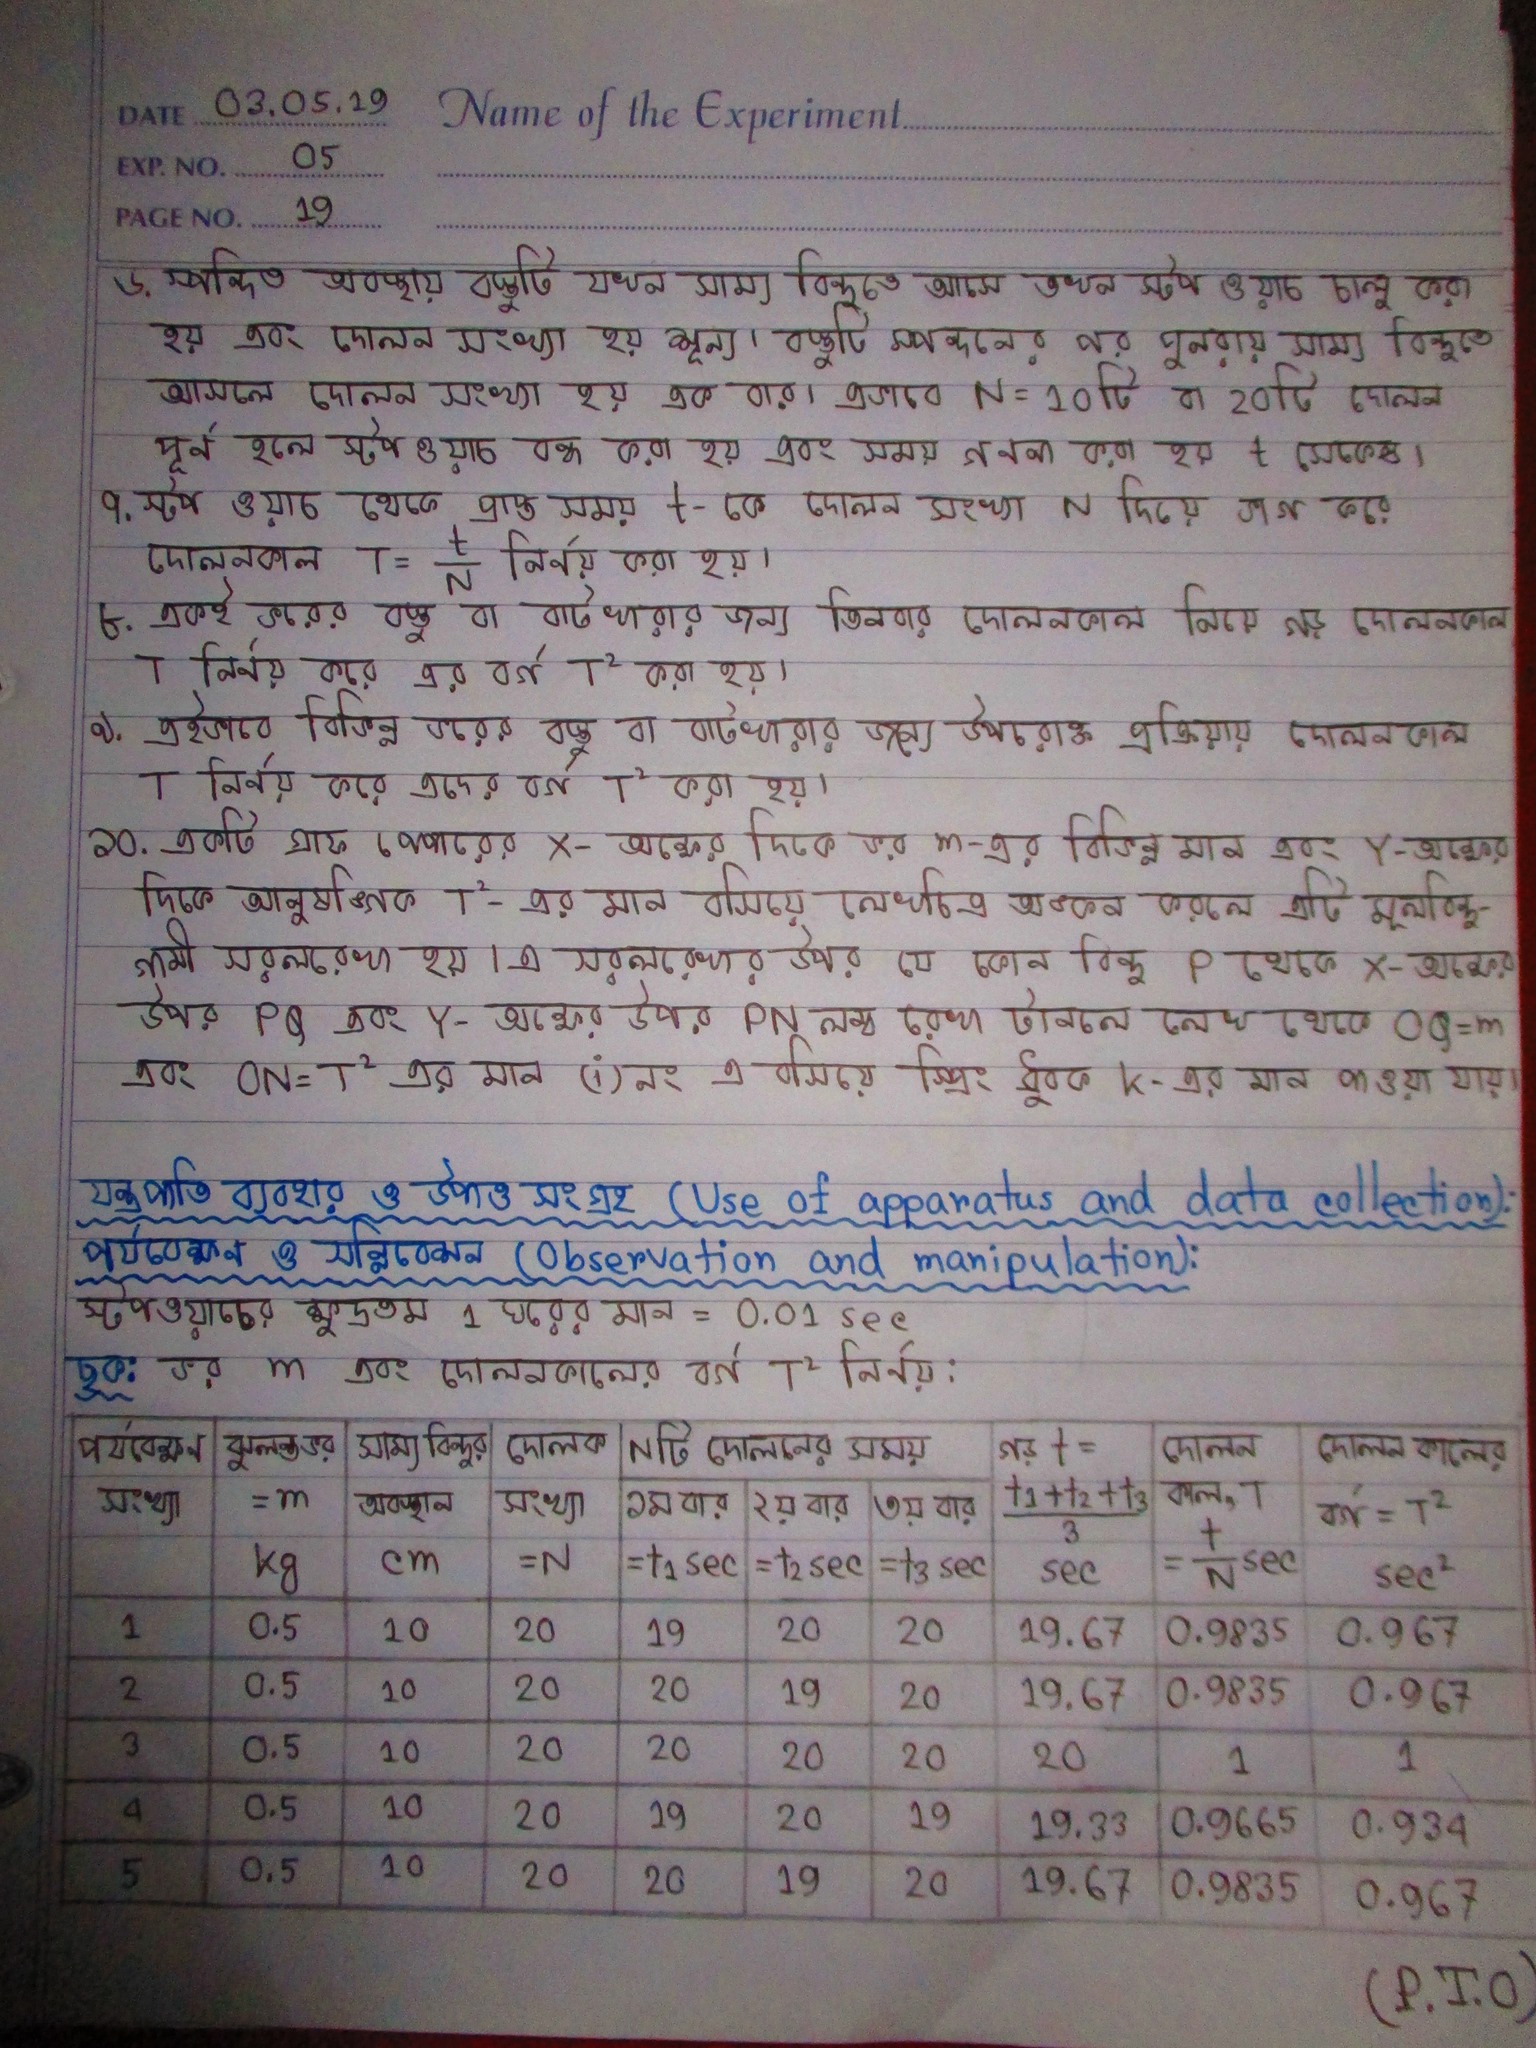 DATE 03.05.19 Name of the Experiment
EXP. NO. 05
PAGE NO. 19
৬. স্পন্দিত অবস্থায় বস্তুটি যখন সাম্য বিন্দুতে আসে তখন স্টপ ওয়াচ চালু করা
হয় এবং দোলন সংখ্যা হয় শূন্য। বস্তুটি স্পন্দনের পর পুনরায় সাম্য বিন্দুতে
আসলে দোলন সংখ্যা হয় এক বার। এভাবে N = 10টি বা 20টি দোলন
পূর্ন হলে স্টপ ওয়াচ বন্ধ করা হয় এবং সময় গননা করা হয় t সেকেন্ড।
৭. স্টপ ওয়াচ থেকে প্রাপ্ত সময় t- কে দোলন সংখ্যা N দিয়ে ভাগ করে
দোলনকাল T = t/N নির্নয় করা হয়।
৮. একই ভরের বস্তু বা বাটখারার জন্য তিনবার দোলনকাল নিয়ে গড় দোলনকাল
T নির্নয় করে এর বর্গ T² করা হয়।
৯. এইভাবে বিভিন্ন ভরের বস্তু বা বাটখারার জন্যে উপরোক্ত প্রক্রিয়ায় দোলনকাল
T নির্নয় করে এদের বর্গ T² করা হয়।
১০. একটি গ্রাফ পেপারের X- অক্ষের দিকে ভর m-এর বিভিন্ন মান এবং Y-অক্ষের
দিকে আনুষঙ্গিক T²- এর মান বসিয়ে লেখচিত্র অঙ্কন করলে এটি মূলবিন্দু-
গামী সরলরেখা হয়। এ সরলরেখার উপর যে কোন বিন্দু P থেকে X-অক্ষের
উপর PQ এবং Y- অক্ষের উপর PN লম্ব রেখা টানলে লেখ থেকে OQ=m
এবং ON=T² এর মান (i) নং এ বসিয়ে স্প্রিং ধ্রুবক k- এর মান পাওয়া যায়।
যন্ত্রপাতি ব্যবহার ও উপাত্ত সংগ্রহ (Use of apparatus and data collection):
পর্যবেক্ষণ ও সন্নিবেশন (Observation and manipulation):
স্টপওয়াচের ক্ষুদ্রতম 1 ঘরের মান = 0.01 sec
ছক: ভর m এবং দোলনকালের বর্গ T² নির্নয়:
পর্যবেক্ষণ ঝুলন্ত ভর সাম্য বিন্দুর দোলক Nটি দোলনের সময় গড় t = দোলন দোলন কালের
সংখ্যা =m অবস্থান সংখ্যা ১ম বার ২য় বার ৩য় বার t1+t2+t3/3 কাল, T বর্গ = T²
kg cm =N =t1 sec =t2 sec =t3 sec sec = t/N sec sec²
1 0.5 10 20 19 20 20 19.67 0.9835 0.967
2 0.5 10 20 20 19 20 19.67 0.9835 0.967
3 0.5 10 20 20 20 20 20 1 1
4 0.5 10 20 19 20 19 19.33 0.9665 0.934
5 0.5 10 20 20 19 20 19.67 0.9835 0.967
(P.T.O)